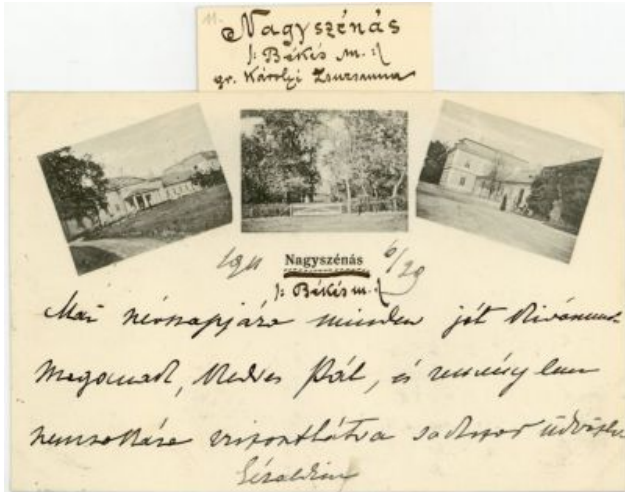 11.
Nagyszénás
/: Békés m. :/
gr. Károlyi Zsuzsanna
1911 Nagyszénás 6/29
/: Békés m. :/
Mai névnapjára minden jót kivánunk
Magának, Kedves Pál, és remélem
nemsokára viszontlátva sokszor üdvözli